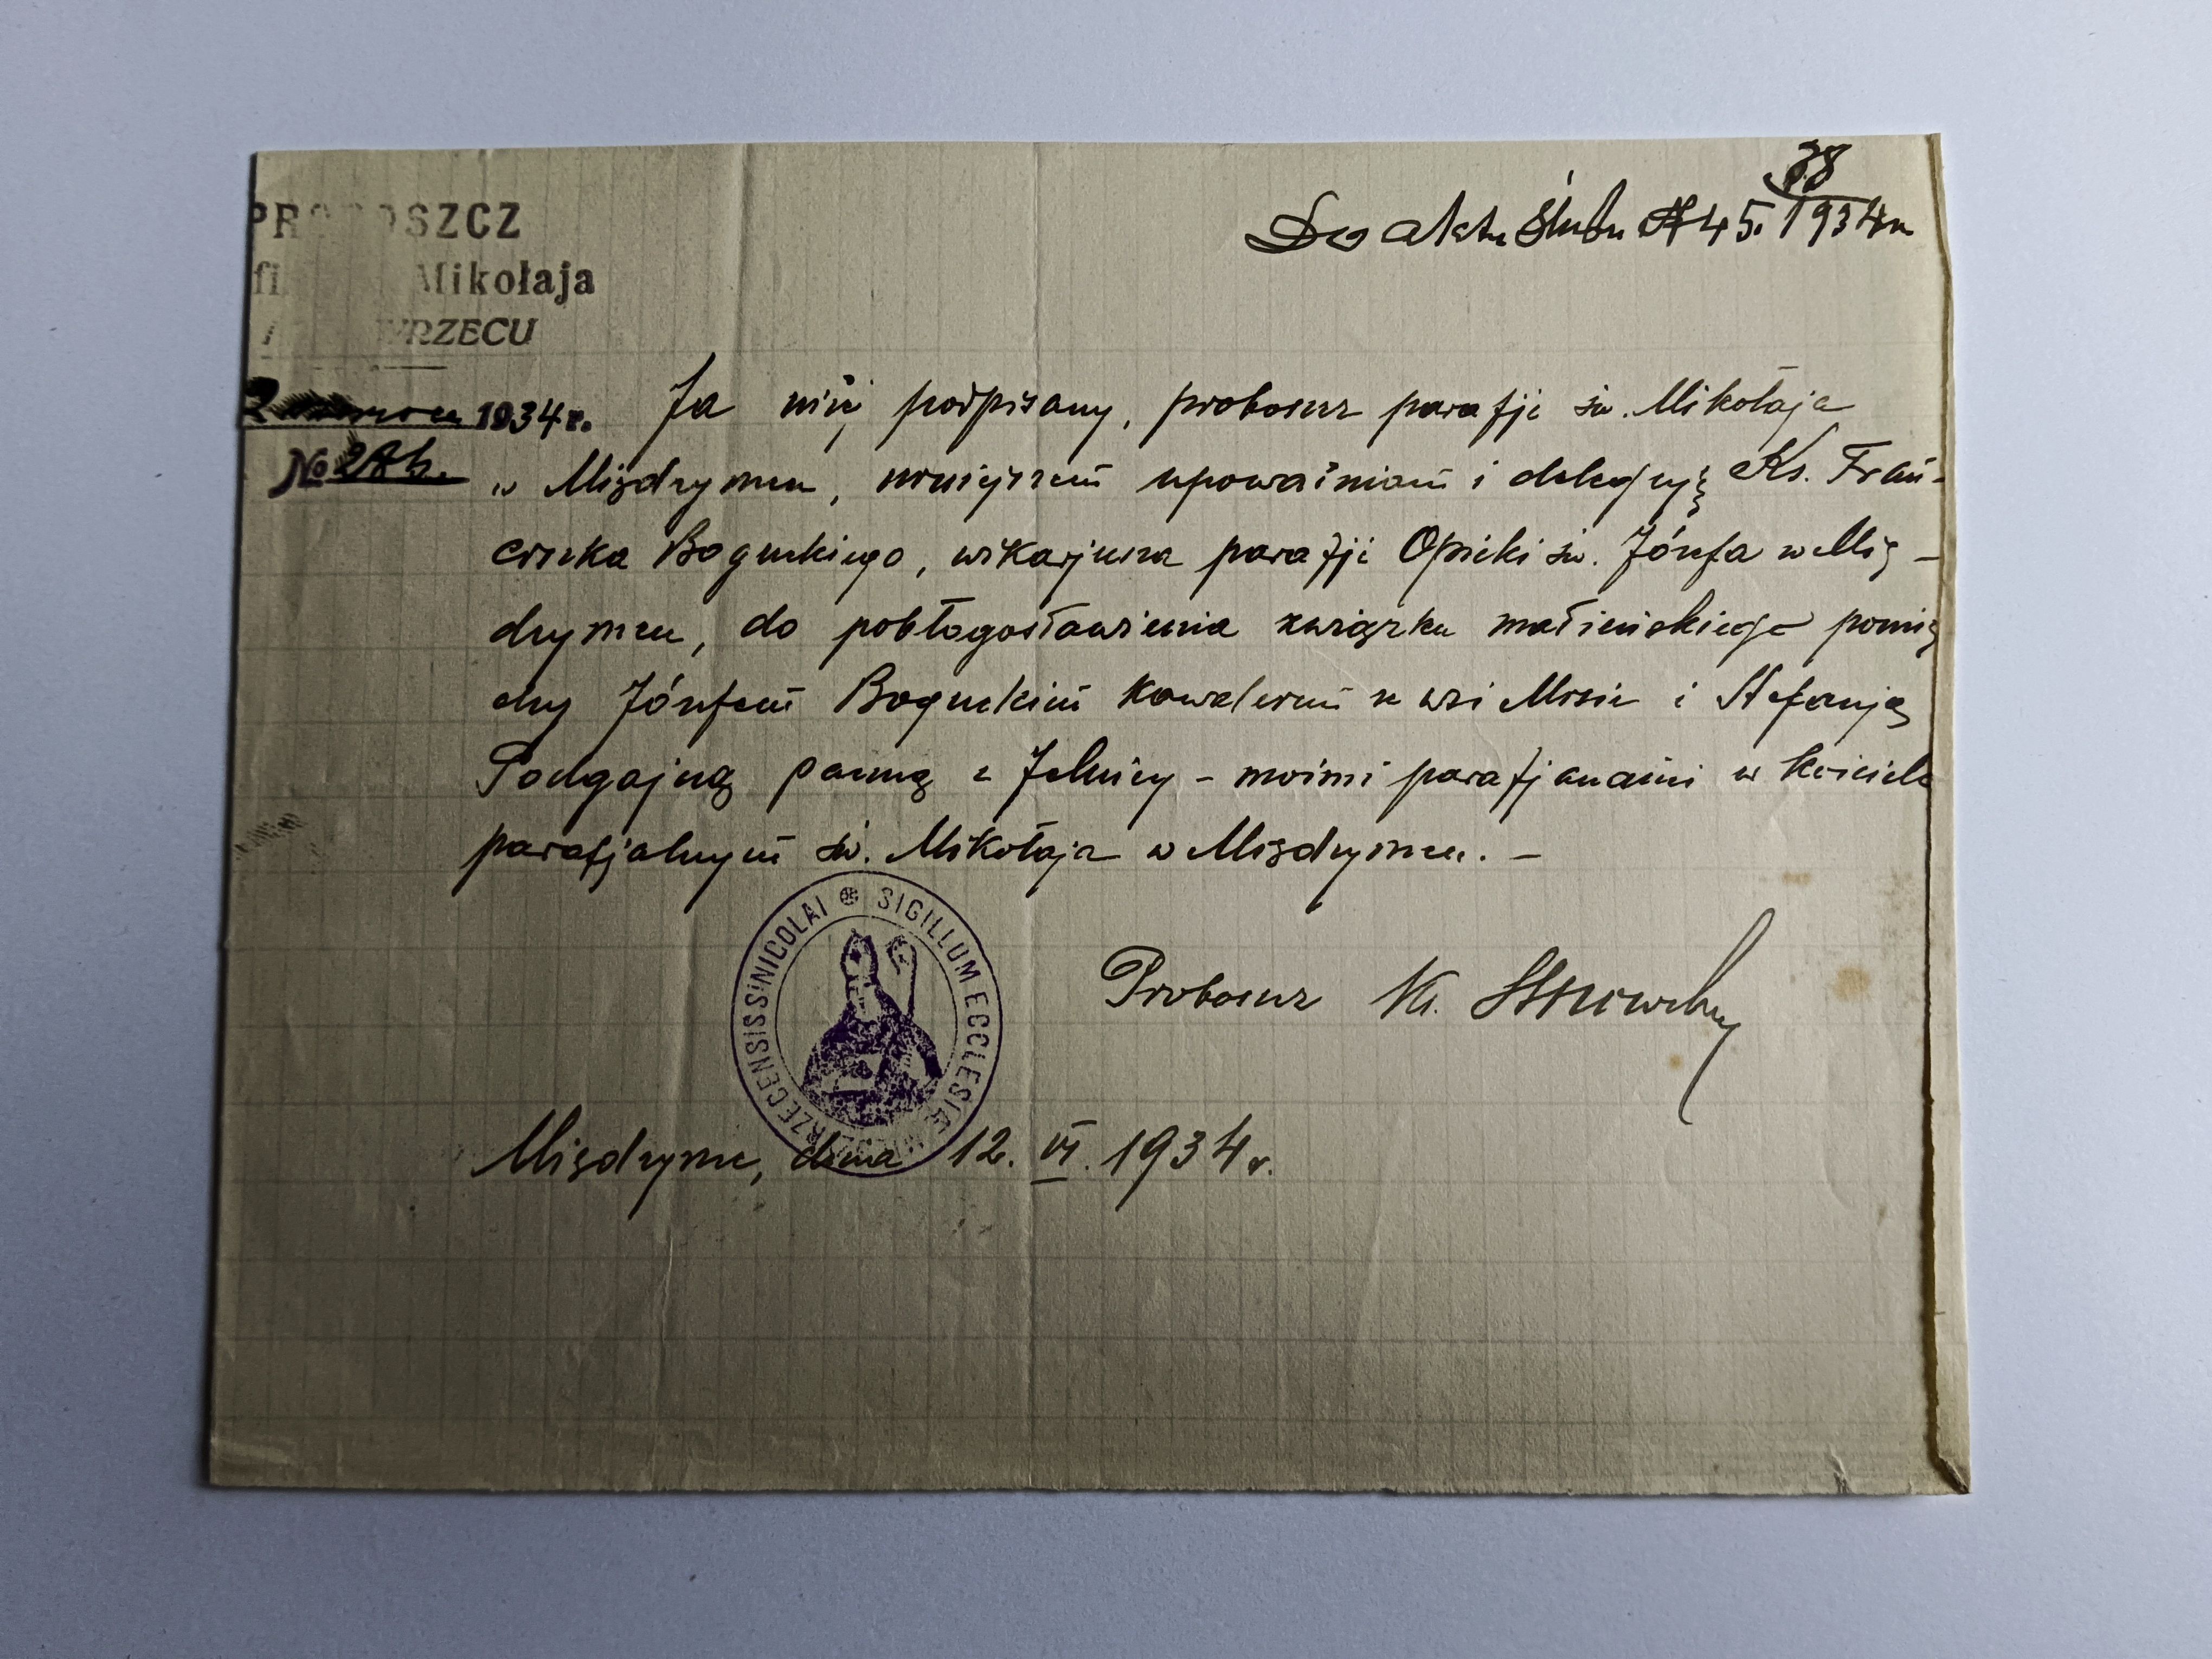 PROBOSZCZ
Mikołaja
RZECU
1934 r.
No
Do aktu ślubu № 45. 1934 r.
38
Ja niżej podpisany, proboszcz parafji św. Mikołaja
w Międzyrzecu, niniejszem upoważniam i deleguję Ks. Fran-
ciszka Boguckiego, wikarjusza parafji Opieki św. Józefa w Mię-
dzyrzecu, do pobłogosławienia związku małżeńskiego pomię
dzy Józefem Boguckim kawalerem z wsi Misie i Stefanją
Podgajną panną z Jelnicy - moimi parafjanami w kościele
parafjalnym św. Mikołaja w Międzyrzecu. -
SIGILLUM ECCLESIÆ MIĘDZYRZECENSIS S. NICOLAI
Proboszcz Ks.
Międzyrzec, dnia 12. VI. 1934 r.